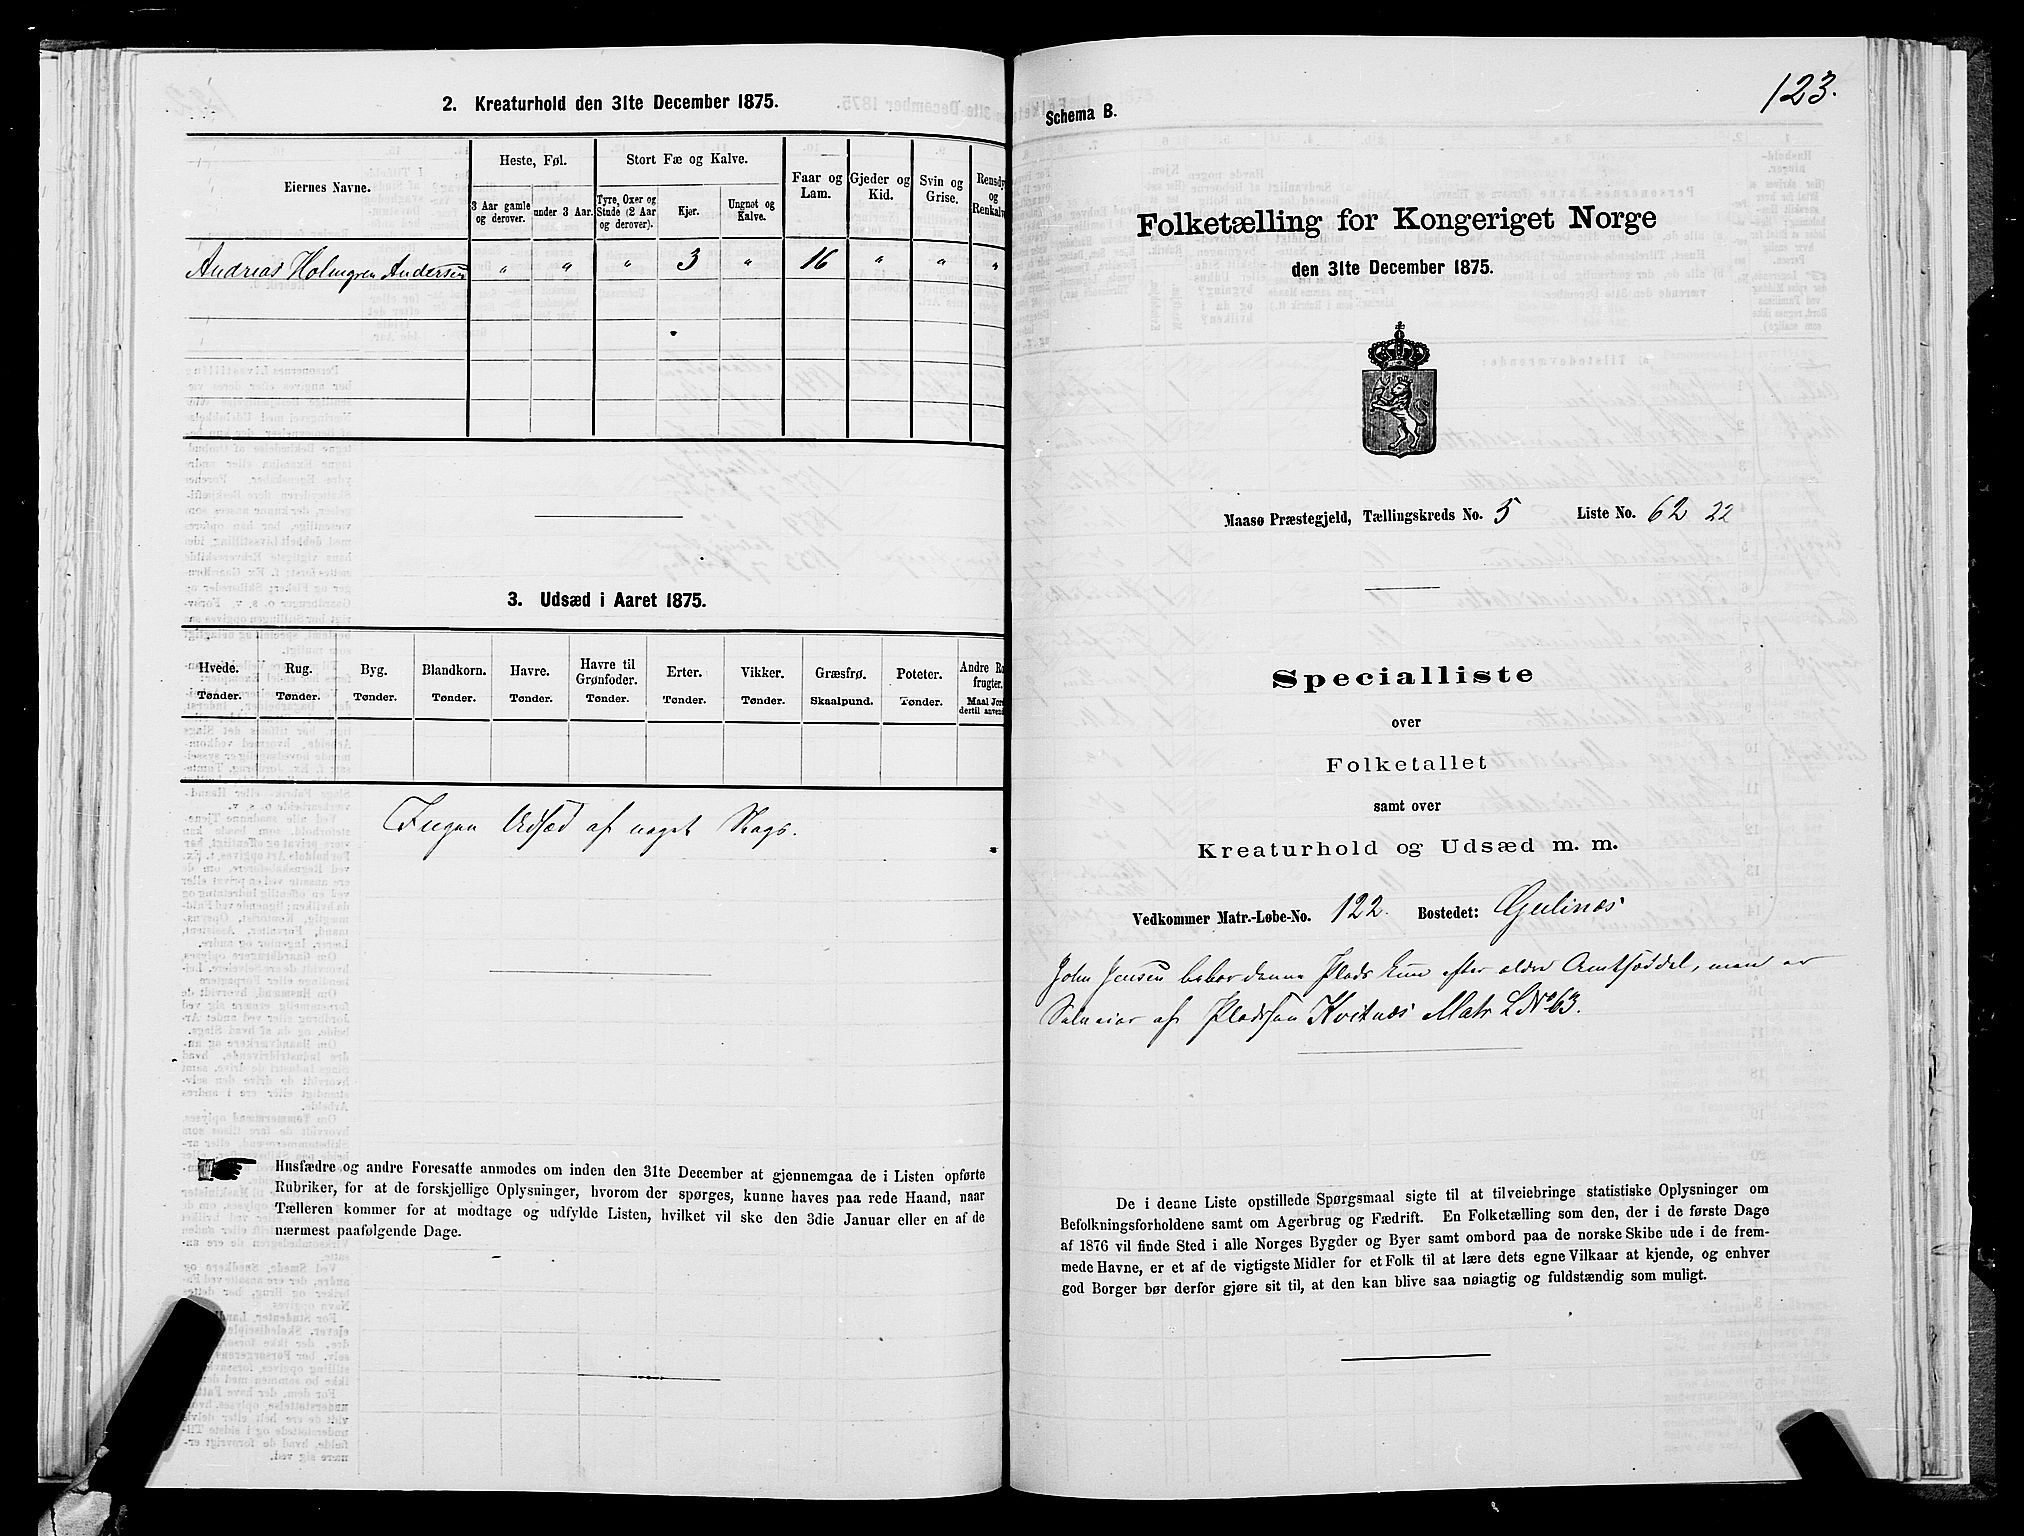 2. Kreaturhold den 31te December 1875.
Eiernes Navne.
Heste, Føl.
Stort Fæ og Kalve.
Faar og Lam.
Gjeder og Kid.
Svin og Grise.
Rensdy og Renkalve
3 Aar gamle og derover.
under 3 Aar.
Tyre, Oxer og Stude (2 Aar og derover).
Kjør.
Ungnøt og Kalve.
Andreas Holmgren Andersen " " " 3 " 16 " " "
3. Udsæd i Aaret 1875.
Hvede. Rug. Byg. Blandkorn. Havre. Havre til Grønfoder. Erter. Vikker. Græsfrø. Poteter. Andre Ro frugter.
Tønder. Tønder. Tønder. Tønder. Tønder. Tønder. Tønder. Tønder. Skaalpund. Tønder. Maal Jord dertil anvend
Ingen Udsæd af noget Slags.
Husfædre og andre Foresatte anmodes om inden den 31te December at gjennemgaa de i Listen opførte
Rubriker, for at de forskjellige Oplysninger, hvorom der spørges, kunne haves paa rede Haand, naar
Tælleren kommer for at modtage og udfylde Listen, hvilket vil ske den 3die Januar eller en af de
nærmest paafølgende Dage.
123.
Schema B.
Folketælling for Kongeriget Norge
den 31te December 1875.
Maasø Præstegjeld, Tællingskreds No. 5 Liste No. 62 22
Specialliste
over
Folketallet
samt over
Kreaturhold og Udsæd m. m.
Vedkommer Matr.-Løbe-No. 122. Bostedet: Gulinæs
John Jensen bebor denne Plads kun efter ældre Amtsseddel, men er
Selveier af Pladsen Kvitnæs Matr L No 63.
De i denne Liste opstillede Spørgsmaal sigte til at tilveiebringe statistiske Oplysninger om
Befolkningsforholdene samt om Agerbrug og Fædrift. En Folketælling som den, der i de første Dage
af 1876 vil finde Sted i alle Norges Bygder og Byer samt ombord paa de norske Skibe ude i de frem-
mede Havne, er et af de vigtigste Midler for et Folk til at lære dets egne Vilkaar at kjende, og enhver
god Borger bør derfor gjøre sit til, at den kan blive saa nøiagtig og fuldstændig som muligt.